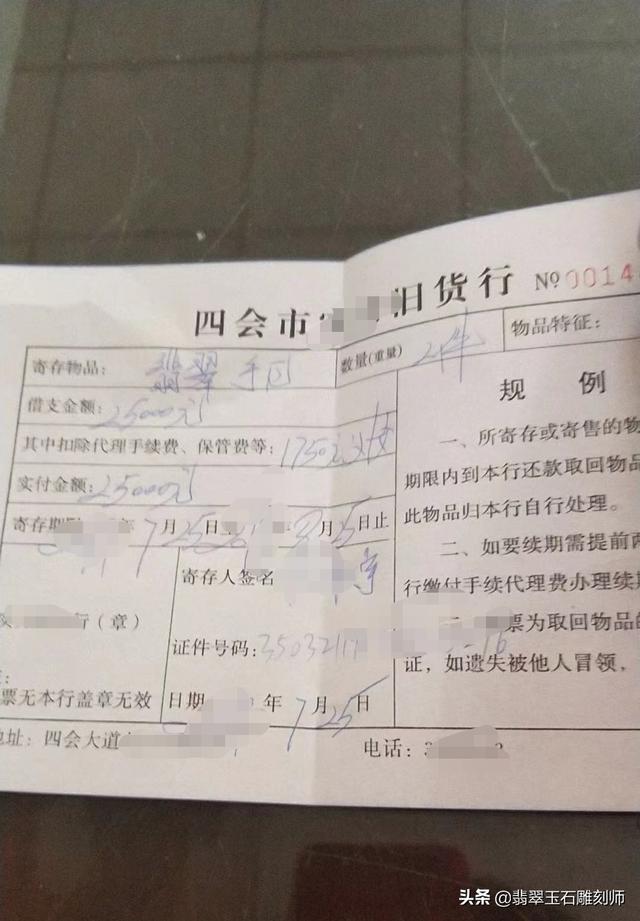 四会市 旧货行 №0014
寄存物品: 翡翠手 数量(重量) 2件 物品特征:
借支金额: 25000元
其中扣除代理手续费、保管费等: 1750元
实付金额: 25000元
寄存期 年7月25日 月25日止
寄存人签名
行(章)
证件号码: 35032
票无本行盖章无效
日期 年7月25日
地址: 四会大道
电话: 3
规 例
一、所寄存或寄售的物
期限内到本行还款取回物品
此物品归本行自行处理。
二、如要续期需提前两
行缴付手续代理费办理续
票为取回物品的
证,如遗失被他人冒领,
头条 @翡翠玉石雕刻师